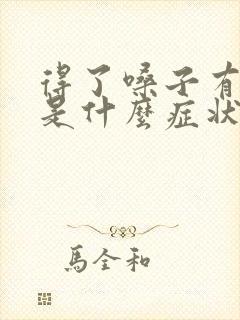 得了嗓子有
是什麼症狀
馬全和